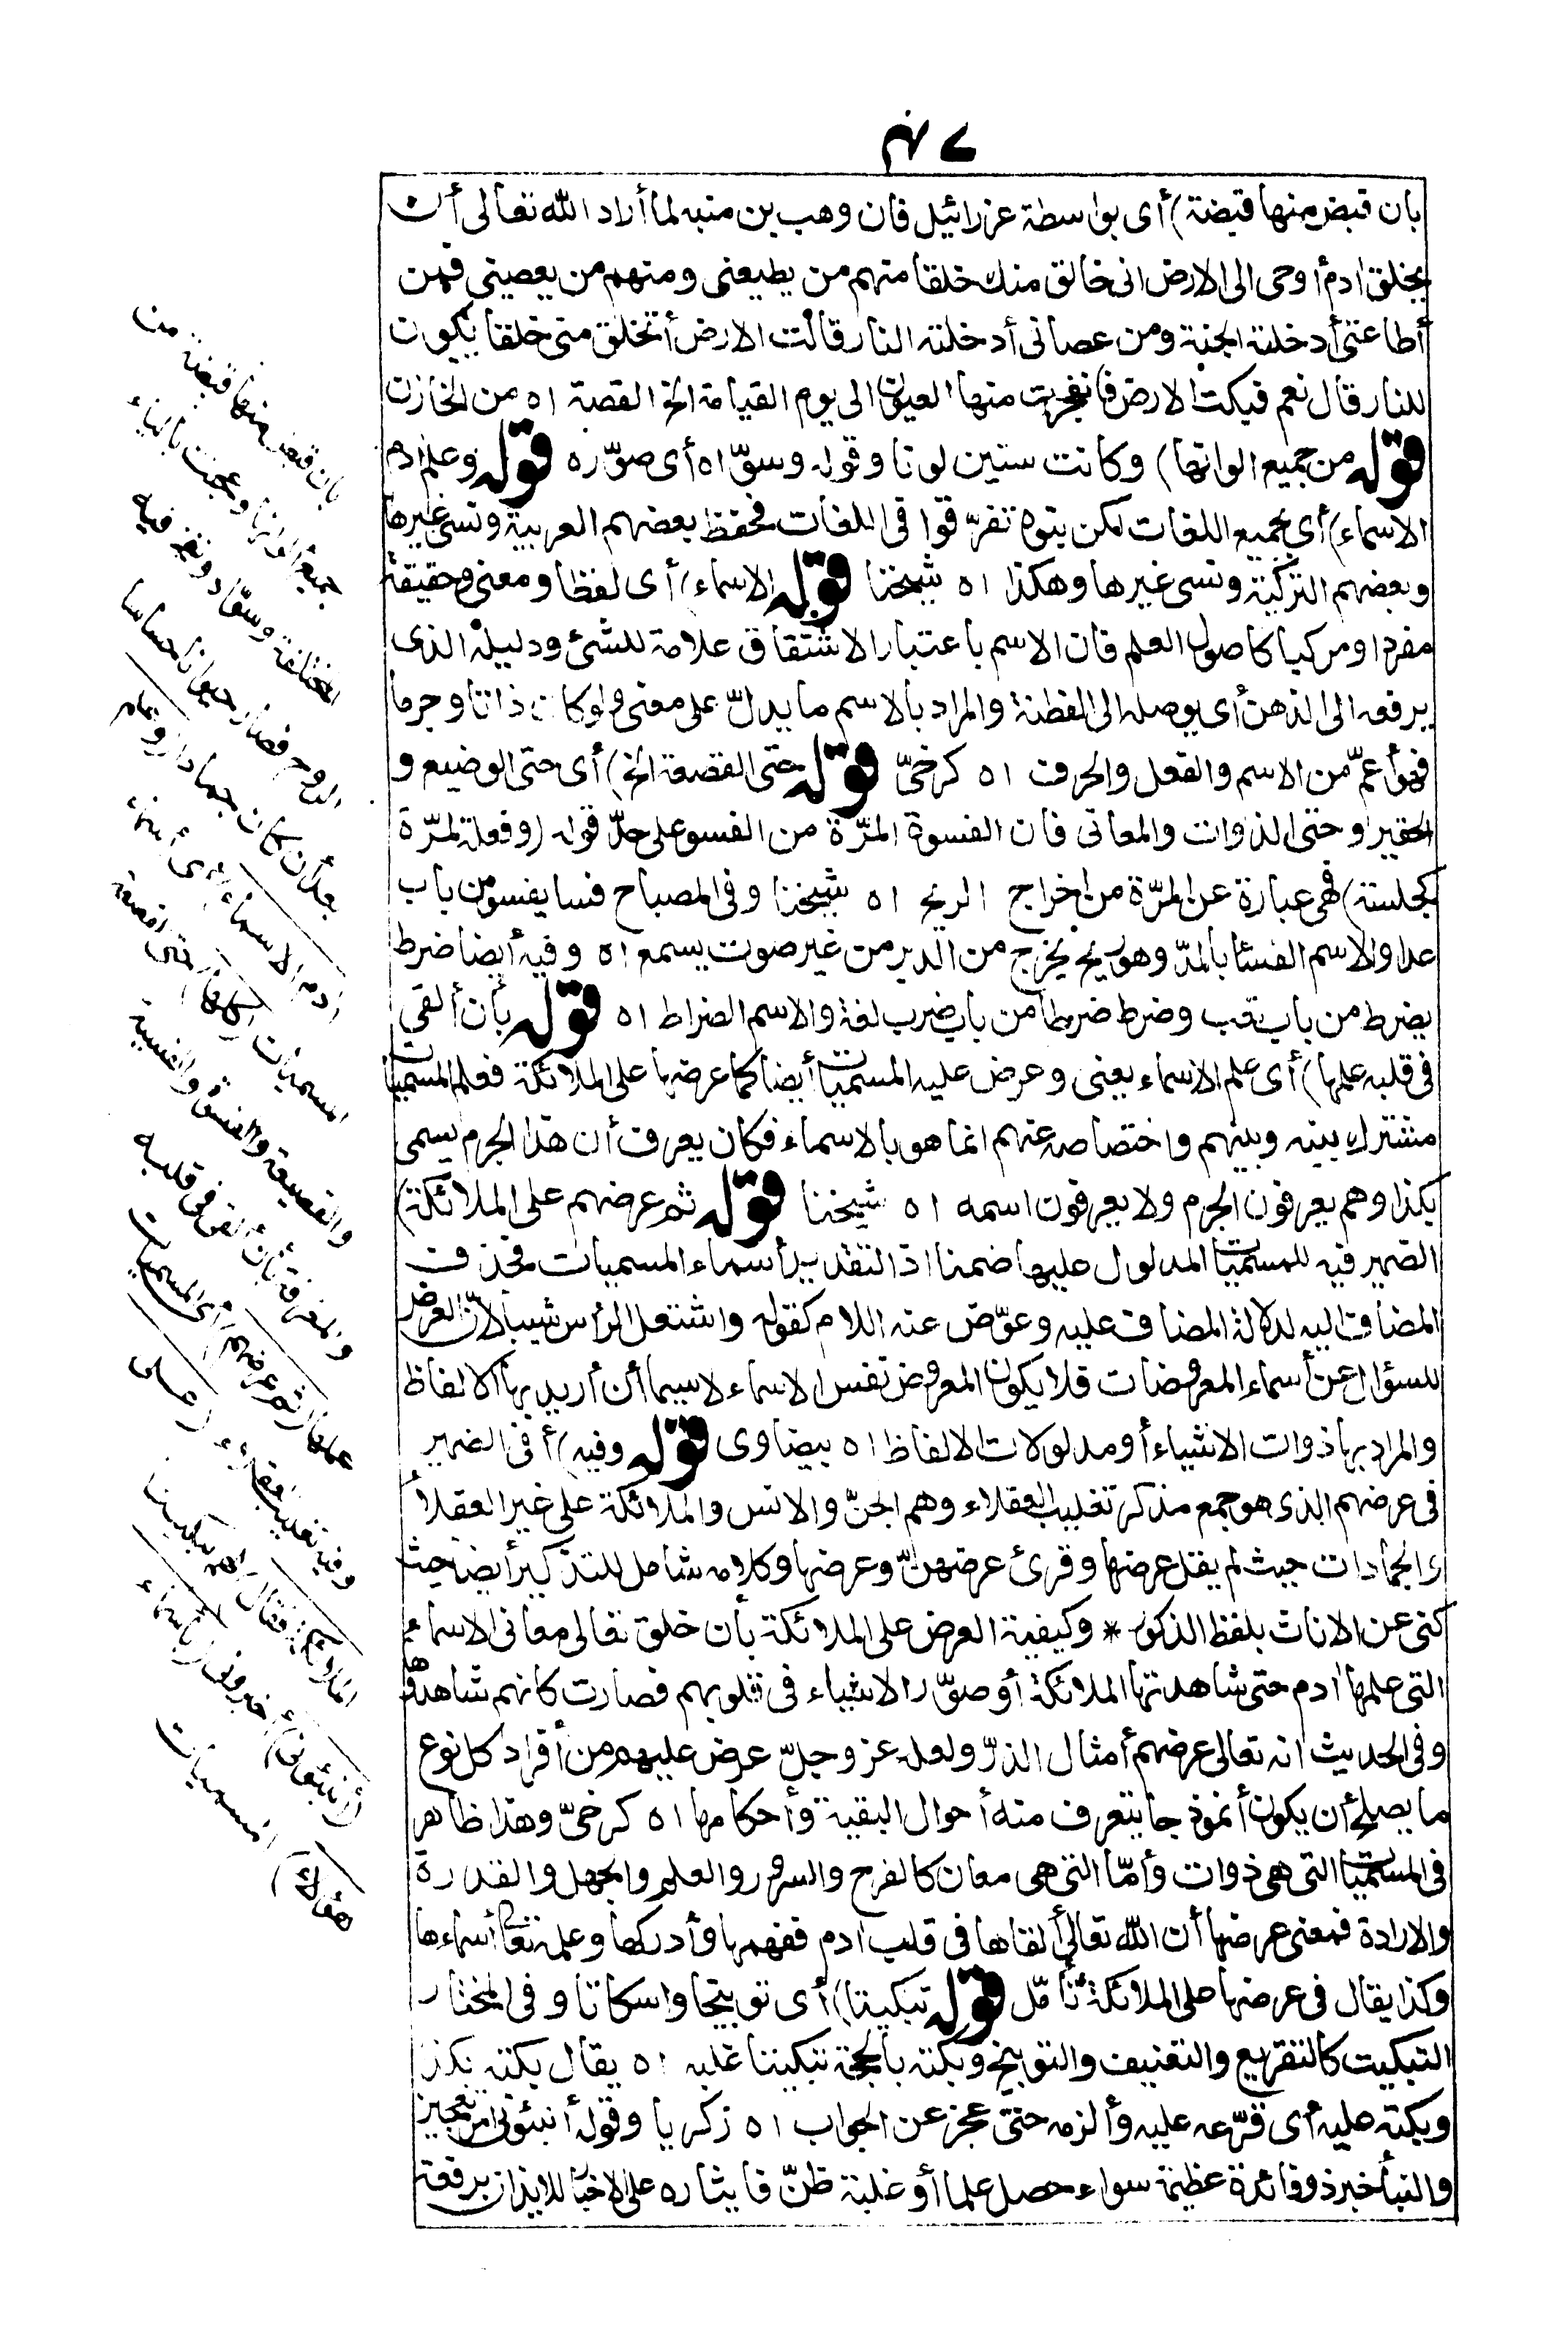 ٤٧
بان قبض منها قبضة) أى بواسطة عزرائيل فان وهب بن منبه لما أراد الله تعالى أن
يخلق ادم أوحى الى الارض انى خالق منك خلقا منهم من يطيعنى ومنهم من يعصينى فمن
أطاعنى أدخلته الجنة ومن عصانى أدخلته النار قالت الارض أتخلق منى خلقا يكون
للنار قال نعم فبكت الارض فانفجرت منها العيون الى يوم القيامة الخ القصة اه من الخازن
قوله من جميع الوانها) وكانت ستين لونا وقوله وسوّاه أى صوّره قوله وعلم ادم
الاسماء) أى بجميع اللغات لكن بنوه تفرّقوا فى اللغات فحفظ بعضهم العربية ونسى غيرها
وبعضهم التركية ونسى غيرها وهكذا اه شيخنا قوله الاسماء) أى لفظا ومعنى وحقيقة
مفردا ومركبا كاصول العلم فان الاسم باعتبار الاشتقاق علامة للشئ ودليله الذى
يرفعه الى الذهن أى يوصله الى الفطنة والمراد بالاسم ما يدلّ على معنى ولو كان ذاتا وجرما
فهو أعمّ من الاسم والفعل والحرف اه كرخىّ قوله حتى القصعة الخ) أى حتى الوضيع و
الحقير وحتى الذوات والمعانى فان الفسوة المرّة من الفسو على حدّ قوله (وفعلة لمرّة
كجلسة) فهى عبارة عن المرّة من اخراج الريح اه شيخنا وفى المصباح فسا يفسو من باب
عدا والاسم الفساء بالمدّ وهو ريح يخرج من الدبر من غير صوت يسمع اه وفيه أيضا ضرط
يضرط من باب تعب وضرط ضرطا من باب ضرب لغة والاسم الضراط اه قوله بأن ألقى
فى قلبه علمها) أى علم الاسماء يعنى وعرض عليه المسميات أيضا كما عرضها على الملائكة فعلم المسميات
مشترك بينه وبينهم واختصاصه عنهم انما هو بالاسماء فكان يعرف أن هذا الجرم يسمى
بكذا وهم يعرفون الجرم ولا يعرفون اسمه اه شيخنا قوله ثم عرضهم على الملائكة)
الضمير فيه للمسميات المدلول عليها ضمنا اذ التقدير أسماء المسميات فحذف
المضاف اليه لدلالة المضاف عليه وعوّض عنه اللام كقوله واشتعل الرأس شيبا لأنّ العرض
للسؤال عن أسماء المعروضات فلا يكون المعروض نفس الاسماء لاسيما أن أريد بها الالفاظ
والمراد بها ذوات الاشياء أو مدلولات الالفاظ اه بيضاوى قوله وفيه) أى فى الضمير
فى عرضهم الذى هو جمع مذكر تغليب العقلاء وهم الجنّ والانس والملائكة على غير العقلا
ء الجمادات حيث لم يقل عرضها وقرئ عرضهنّ وعرضها وكلامه شامل للتذكير أيضا حيث
كنى عن الاناث بلفظ الذكور * وكيفية العرض على الملائكة بأن خلق تعالى معانى الاسماء
التى علمها ادم حتى شاهدتها الملائكة أو صوّر الاشياء فى قلوبهم فصارت كانهم شاهدوها
وفى الحديث انه تعالى عرضهم أمثال الذرّ ولعله عز وجلّ عرض عليهم من أفراد كل نوع
ما يصلح أن يكون أنموذجا يتعرف منه أحوال البقية وأحكامها اه كرخىّ وهذا ظاهر
فى المسميات التى هى ذوات وأمّا التى هى معان كالفرح والسرور والعلم والجهل والقدرة
والارادة فمعنى عرضها أن الله تعالى ألقاها فى قلب ادم ففهمها وأدركها وعلمه تعالى أسماءها
وكذا يقال فى عرضها على الملائكة تأمّل قوله تبكيتا) أى توبيخا واسكاتا وفى المختار
التبكيت كالتقريع والتعنيف والتوبيخ وبكته بالحجة تبكيتا غلبه اه يقال بكته بكذا
وبكته عليه أى قرّعه عليه وألزمه حتى عجز عن الجواب اه زكريا وقوله أنبئونى امر تعجيز
والنبأ خبر ذو فائدة عظيمة سواء حصل علما أو غلبة ظنّ فايثاره على الاخبار للايذان برفعة
بان قبض منها قبضة من
جميع ألوانها وعجنت بالمياء
المختلفة وسوّاه ونفخ فيه
الروح فصار حيوانا حساسا
بعد أن كان جمادا (وعلم
ادم الاسماء) أى أسماء
المسميات (كلها) حتى القصعة
والقصيعة والفسوة والفسية
والمغرفة بأن ألقى فى قلبه
علمها (ثم عرضهم) أى المسميات
وفيه تغليب العقلاء (على
الملائكة فقال) لهم تبكيتا
(أنبئونى) أخبرونى (بأسماء
هؤلاء) المسميات